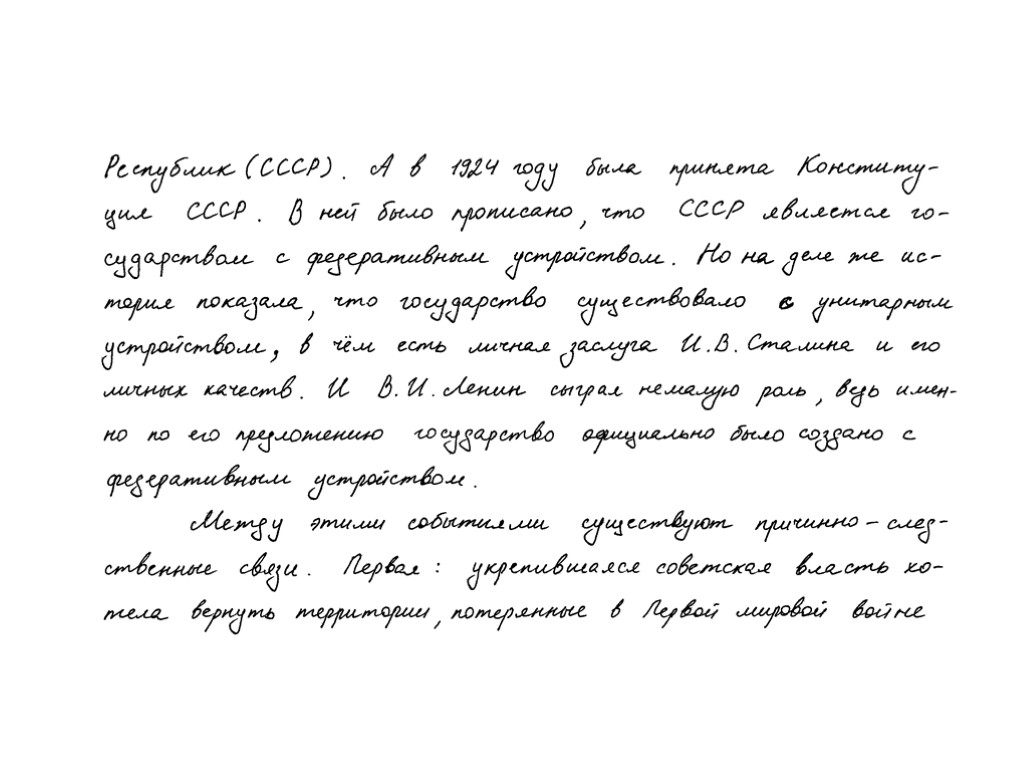 Республик (СССР). А в 1924 году была принята Конститу-
ция СССР. В ней было прописано, что СССР является го-
сударством с федеративным устройством. Но на деле же ис-
тория показала, что государство существовало с унитарным
устройством, в чём есть личная заслуга И.В. Сталина и его
личных качеств. И В.И. Ленин сыграл немалую роль, ведь имен-
но по его предложению государство официально было создано с
федеративным устройством.
Между этими событиями существуют причинно-след-
ственные связи. Первая: укрепившаяся советская власть хо-
тела вернуть территории, потерянные в Первой мировой войне